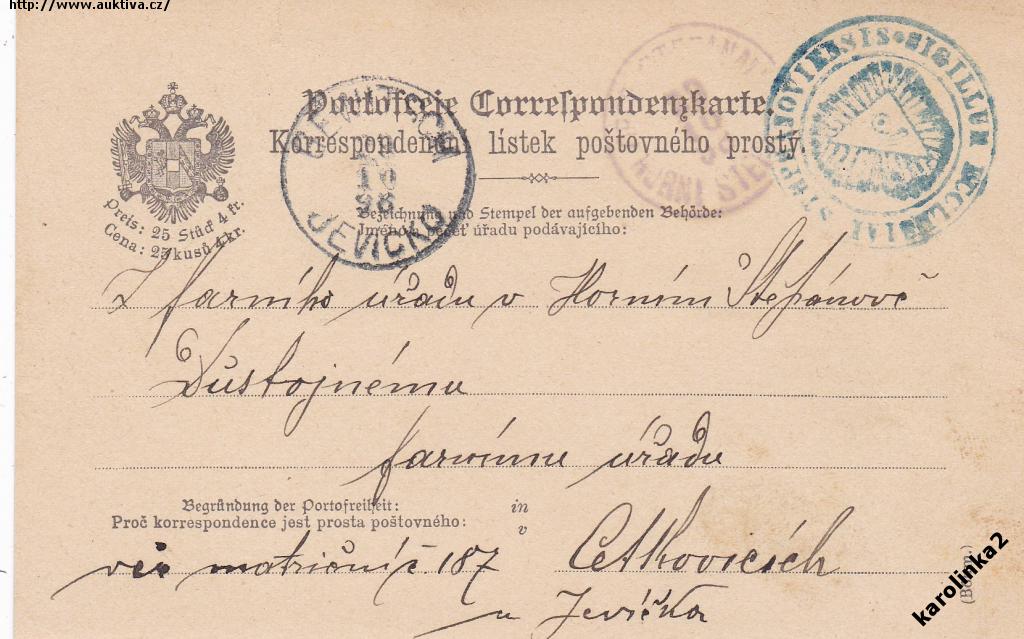 http://www.auktiva.cz/
Portofreie Correspondenzkarte.
Korrespondenční lístek poštovného prostý.
GEWITSCH
10
98
JEVÍČKO
SIGILLUM ECCLESIAE
Preis: 25 Stück 4 kr.
Cena: 25 kusů 4 kr.
Bezeichnung und Stempel der aufgebenden Behörde:
Jméno a pečeť úřadu podávajícího:
Z farního úřadu v Horním Štěpánově
Důstojnému
farnímu úřadu
Begründung der Portofreiheit:
Proč korrespondence jest prosta poštovného:
in
v
Cetkovicích
věc matriční č 187
u Jevíčka
karolinka2